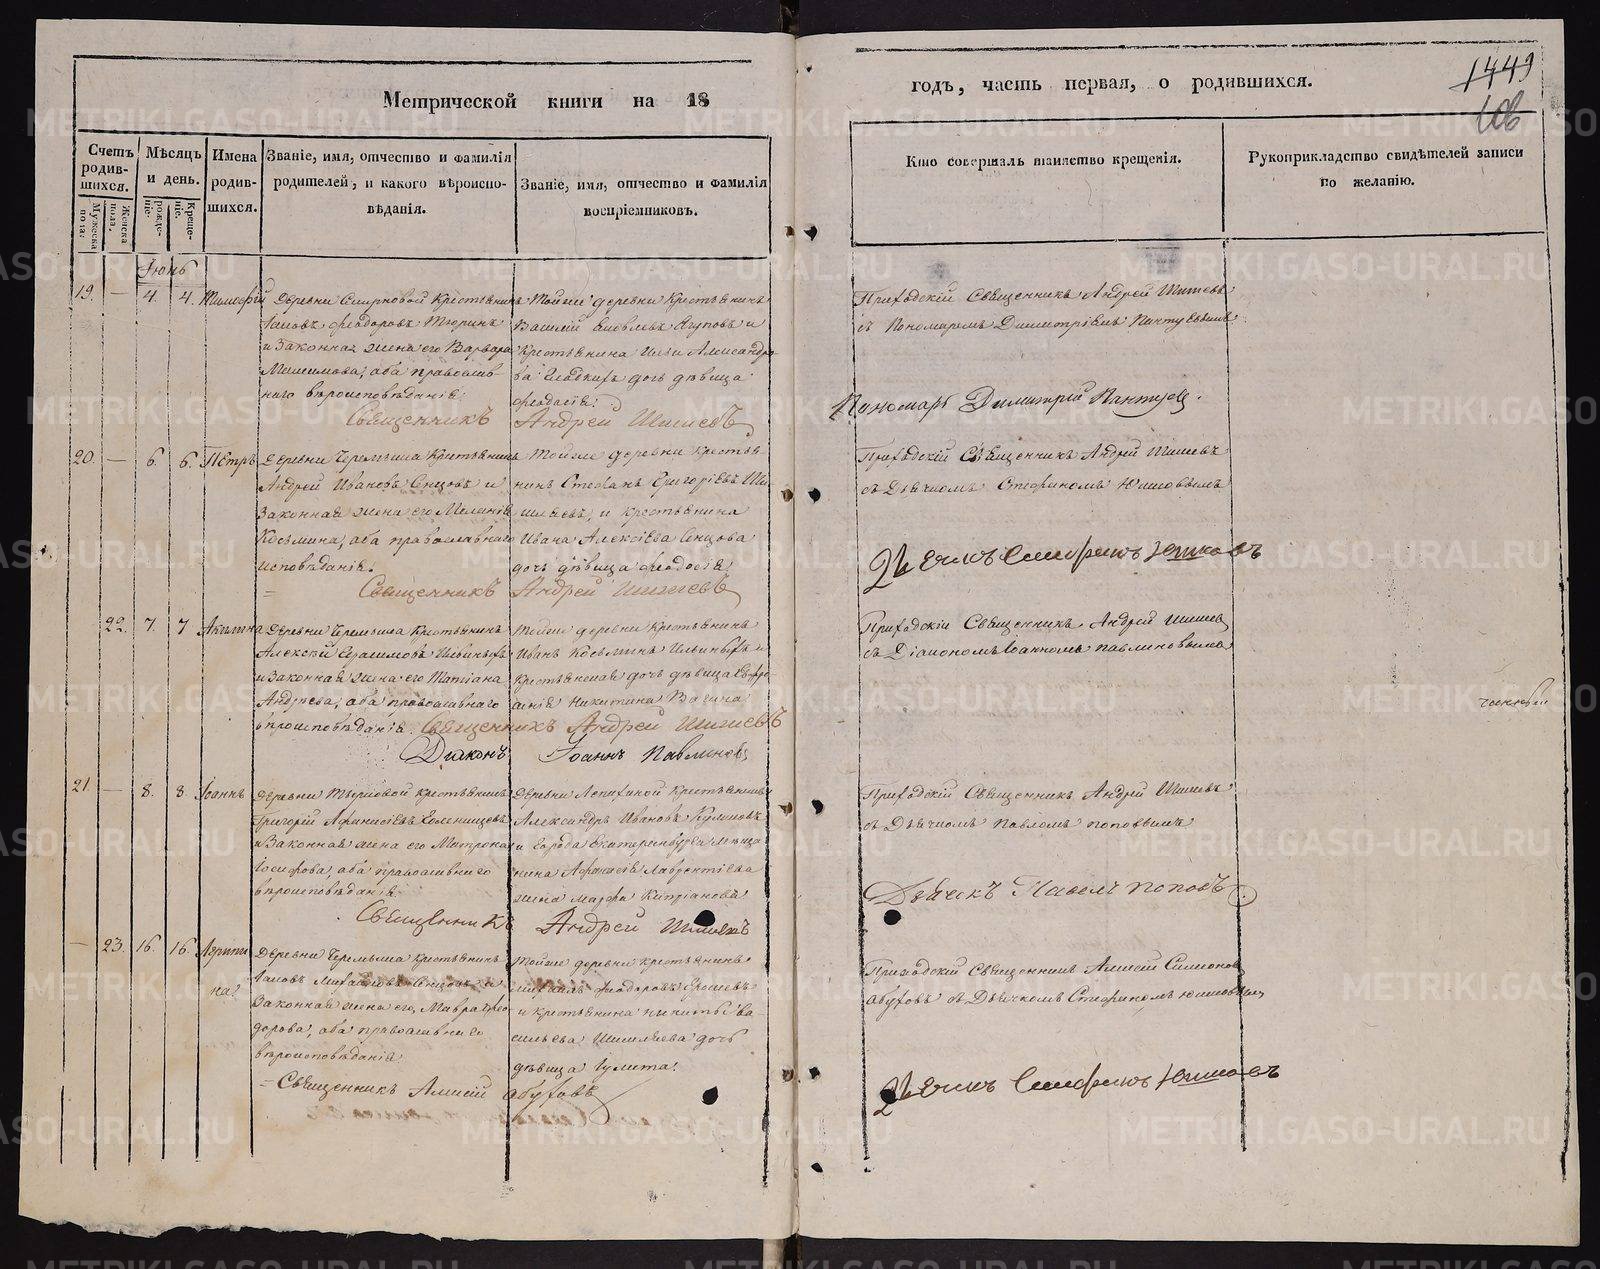 Метрической книги на 18
годъ, часть первая, о родившихся.
1449
Счетъ родив-
шихся.
Мужеска пола.
Женска пола.
Мѣсяцъ
и день.
рожде-
ніе.
Креще-
ніе.
Имена
родив-
шихся.
Званіе, имя, отчество и фамилія
родителей, и какого вѣроиспо-
вѣданія.
Званіе, имя, отчество и фамилія
воспріемниковъ.
Кто совершалъ таинство крещенія.
Рукоприкладство свидѣтелей записи
по желанію.
Іюнь
19. — 4. 4. Тимофей
Деревни Смирновой Крестьянинъ
Іаковъ Феодоровъ
и законная жена его Варвара
оба православ-
наго вѣроисповѣданія.
Тойже деревни Крестьянинъ
Василій Яковлевъ и
Крестьянина Ильи Александро-
ва дочь дѣвица
Феодосія.
Священникъ Андрей Шишевъ
Приходскій Священникъ Андрей Шишевъ
съ Пономаремъ Димитріемъ Пантуевымъ
Пономарь Димитрій Пантуевъ.
20. — 6. 6. Петръ
Деревни Черемыша Крестьянинъ
Андрей Ивановъ Сенцовъ и
Законная жена его Меланія
Козьмина, оба православнаго
исповѣданія.
Тойже деревни Крестья-
нинъ Стефанъ Григоріевъ
и крестьянина
Ивана Алексіева Сенцова
дочь дѣвица Феодосія
Священникъ Андрей Шишевъ
Приходскій Священникъ Андрей Шишевъ
съ Дьячкомъ Стефаномъ Юшковымъ
Дьячекъ Стефанъ Юшковъ
22. 7. 7 Акилина
Деревни Черемыша Крестьянинъ
Алексѣй Герасимовъ Ильиныхъ
и законная жена его Татіана
Андреева, оба православнаго
вѣроисповѣданія.
Тойже деревни Крестьянинъ
Иванъ Козьминъ Ильиныхъ и
Крестьянская дочь дѣвица Евфро-
синія Никитина Вагина
Священникъ Андрей Шишевъ
Діаконъ Іоаннъ Павлиновъ
Приходскій Священникъ Андрей Шишевъ
съ Діакономъ Іоанномъ Павлиновымъ
21 — 8. 8 Іоаннъ
Деревни Крестьянинъ
Григорій Афанасіевъ Голенищевъ
и Законная жена его Матрона
Іосифова, оба православнаго
вѣроисповѣданія.
Деревни Лепихиной Крестьянинъ
Александръ Ивановъ Куликовъ
и города Екатеринбурга мѣща-
нина Афанасія Лаврентіева
жена Марфа Кипріанова
Священникъ Андрей Шишевъ
Приходскій Священникъ Андрей Шишевъ
съ Дьячкомъ Павломъ Поповымъ
Дьячекъ Павелъ Поповъ
— 23. 16. 16. Агрипи-
на
Деревни Черемыша Крестьянинъ
Іаковъ Михаиловъ Сенцовъ и
Законная жена его, Мавра Фео-
дорова, оба православнаго
вѣроисповѣданія
Тойже деревни Крестьянинъ
Михаилъ Феодоровъ Ерошевъ
и крестьянина Никиты Ва-
сильева дочь
дѣвица Іулита.
Священникъ Алексій Обуховъ
Приходскій Священникъ Алексій Симеоновъ
Обуховъ съ Дьячкомъ Стефаномъ Юшковымъ
Дьячекъ Стефанъ Юшковъ